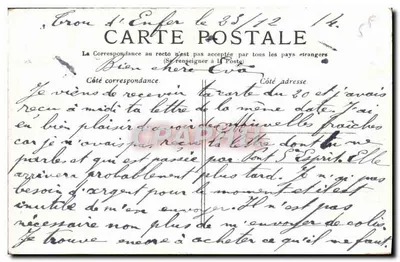 Trou d'Enfer le 23/12 14.
CARTE POSTALE
La Correspondance au recto n'est pas acceptée par tous les pays étrangers
(Se renseigner à la Poste)
Bien chère Eva
Côté correspondance. Côté adresse
Je viens de recevoir ta carte du 20 et j'avais
reçu à midi ta lettre de la même date. J'ai
eu bien plaisir de nouvelles fraîches
car je n'avais pas reçu ta lettre dont tu me
parles et qui est passée par Pont S Esprit. Elle
arrivera probablement plus tard. Je n'ai pas
besoin d'argent pour le moment et il est
inutile de m'en envoyer. Il n'est pas
nécessaire non plus de m'envoyer de colis.
Je trouve encore à acheter ce qu'il me faut.